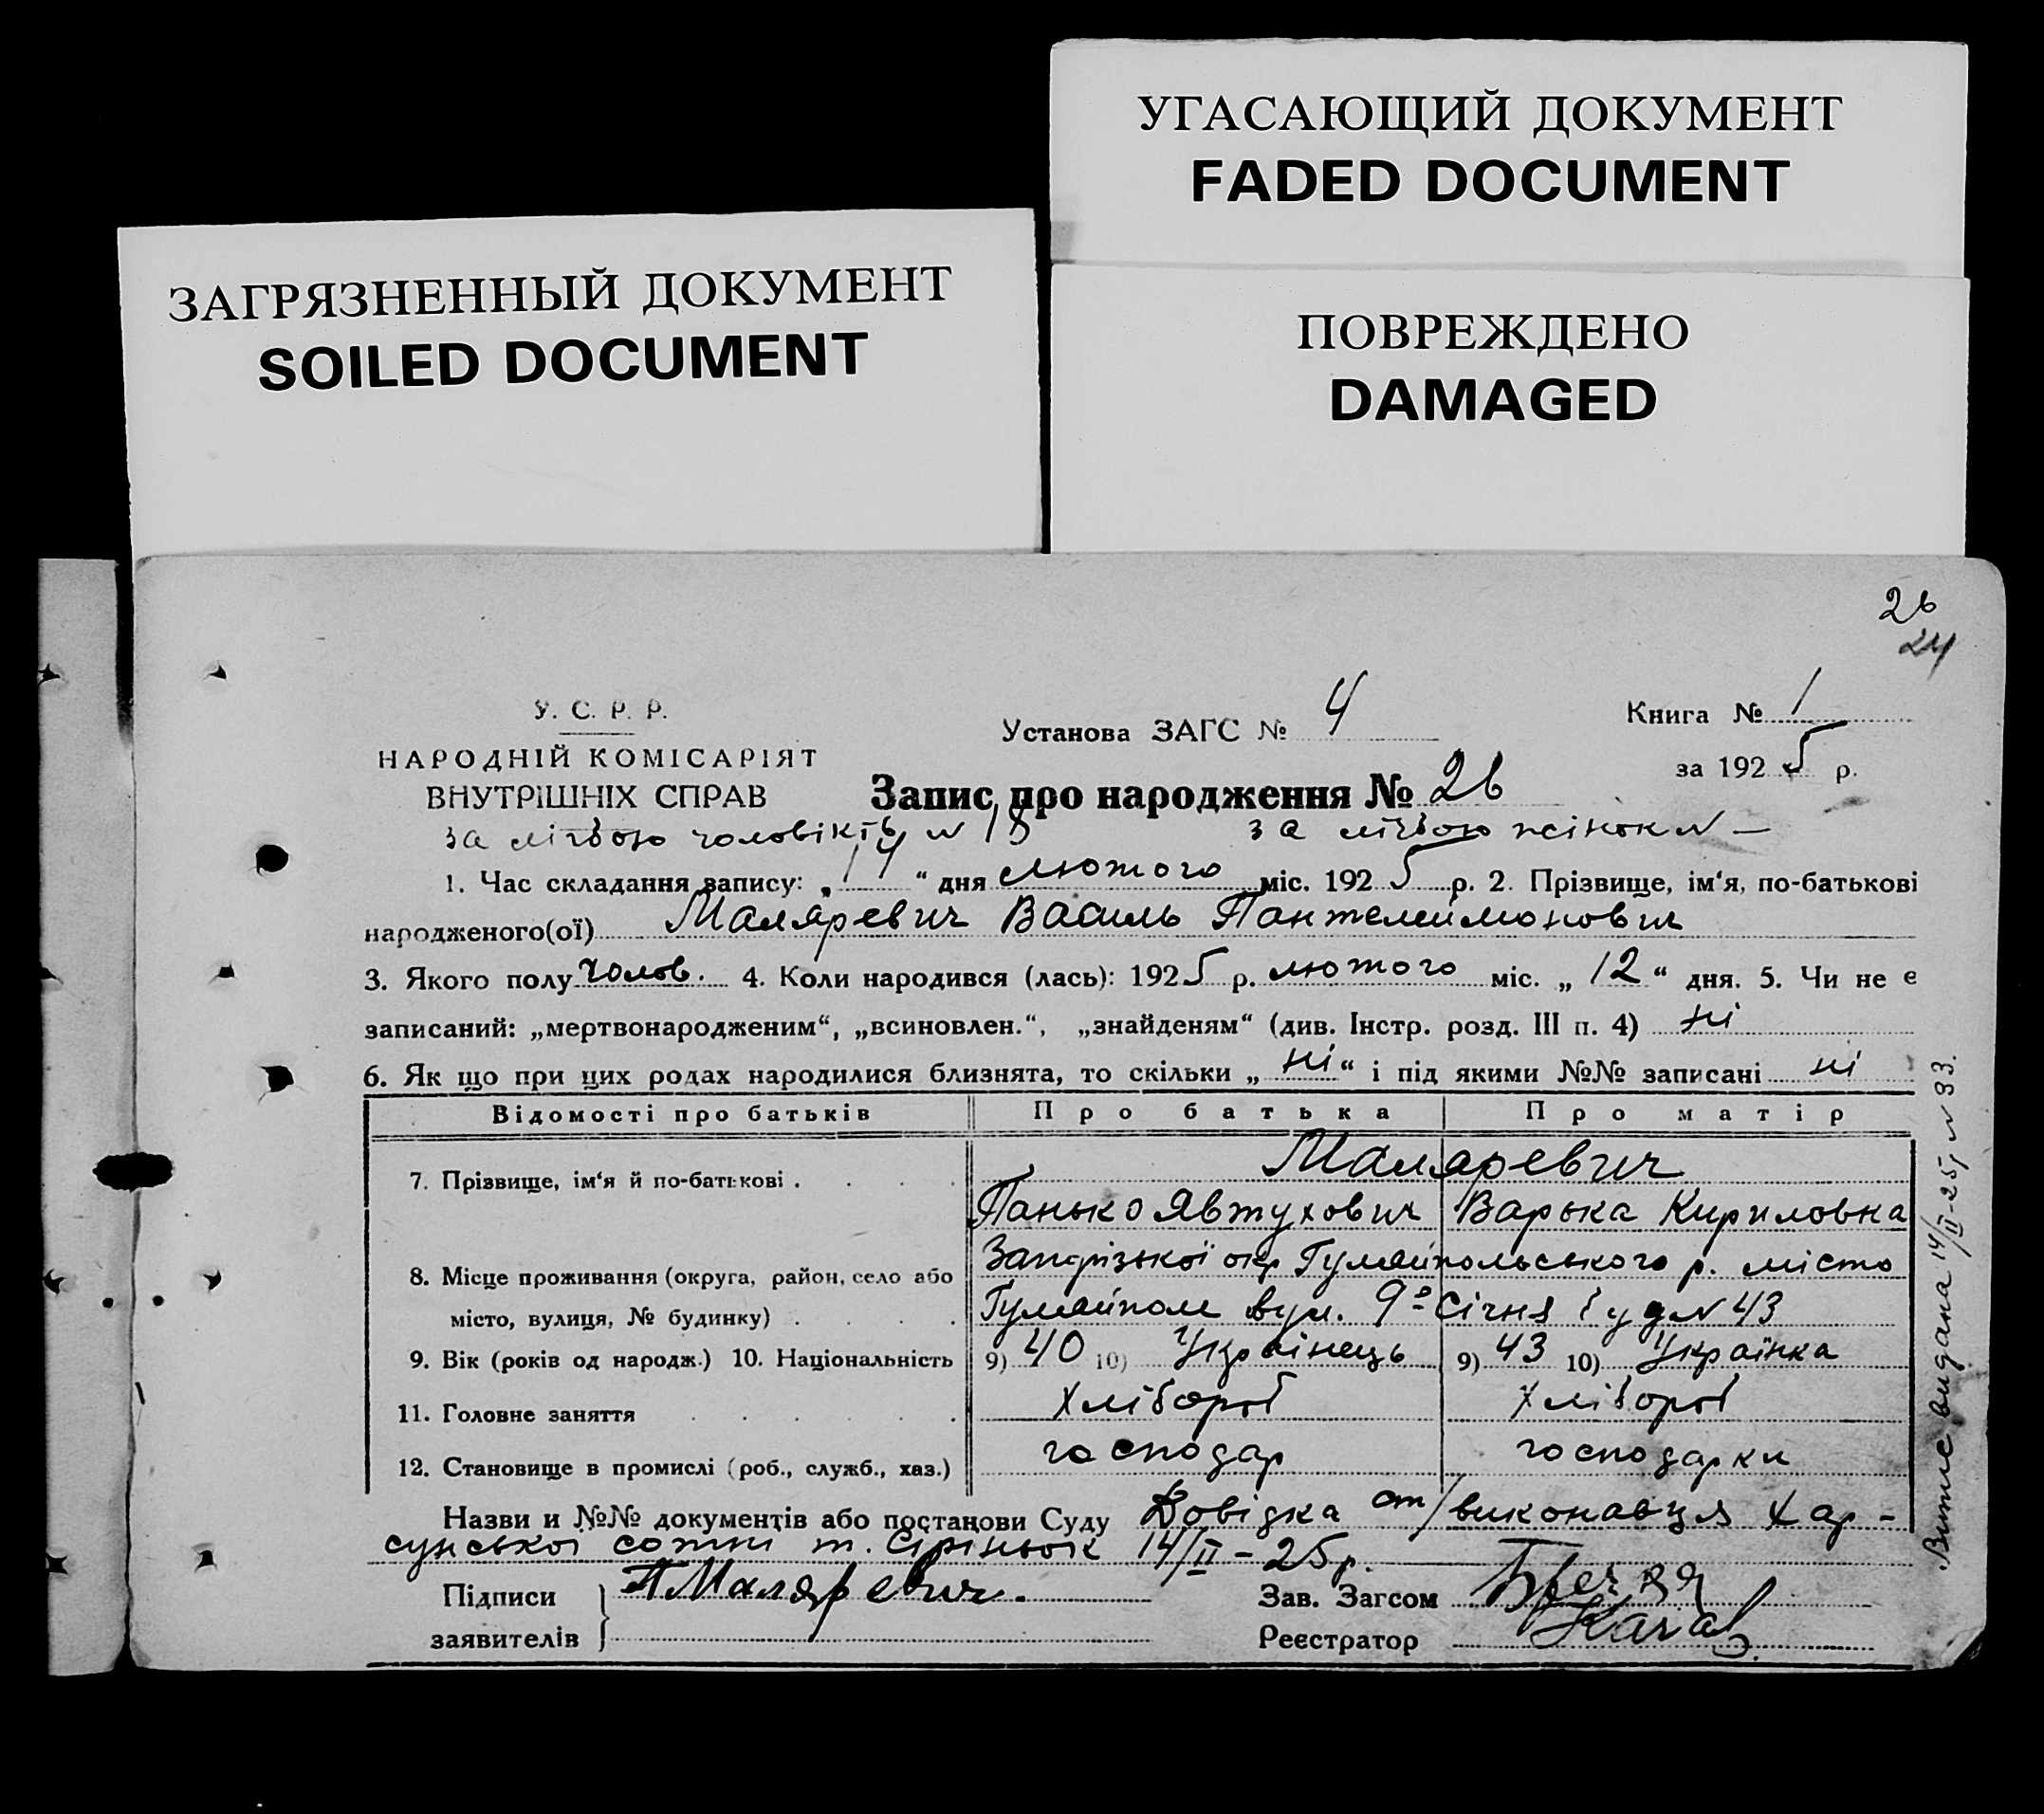 УГАСАЮЩИЙ ДОКУМЕНТ
FADED DOCUMENT
ЗАГРЯЗНЕННЫЙ ДОКУМЕНТ
SOILED DOCUMENT
ПОВРЕЖДЕНО
DAMAGED
26
24
У. С. Р. Р.
НАРОДНІЙ КОМІСАРІЯТ
ВНУТРІШНІХ СПРАВ
Установа ЗАГС № 4
Книга № 1
за 1925 р.
Запис про народження № 26
за лічбою чоловіків № 18 за лічбою жінок № —
1. Час складання запису: „14“ дня лютого міс. 1925 р. 2. Прізвище, ім'я, по-батькові
народженого(ої) Маляревич Василь Пантелеймонович
3. Якого полу чолов. 4. Коли народився (лась): 1925 р. лютого міс. „12“ дня. 5. Чи не є
записаний: „мертвонародженим“, „всиновлен.“, „знайденям“ (див. Інстр. розд. III п. 4) ні
6. Як що при цих родах народилися близнята, то скільки „ні“ і під якими №№ записані ні
Відомості про батьків Про батька Про матір
7. Прізвище, ім'я й по-батькові . . . . Маляревич
Панько Явтухович Варька Кириловна
8. Місце проживання (округа, район, село або Запорізької окр Гуляйпольського р. місто
місто, вулиця, № будинку) . . . . Гуляйполе вул. 9го Січня буд № 43
9. Вік (років од народж.) 10. Національність 9) 40 10) Українець 9) 43 10) Українка
11. Головне заняття . . . . . . Хлібороб Хлібороб
12. Становище в промислі (роб., служб., хаз.) господар господарки
Назви и №№ документів або постанови Суду Довідка от/виконавця Хар-
сунської сотні т. 14/II – 25 р.
Підписи заявителів П Маляревич.
Зав. Загсом
Реєстратор
Витис видана 14/II-25 р № 33.